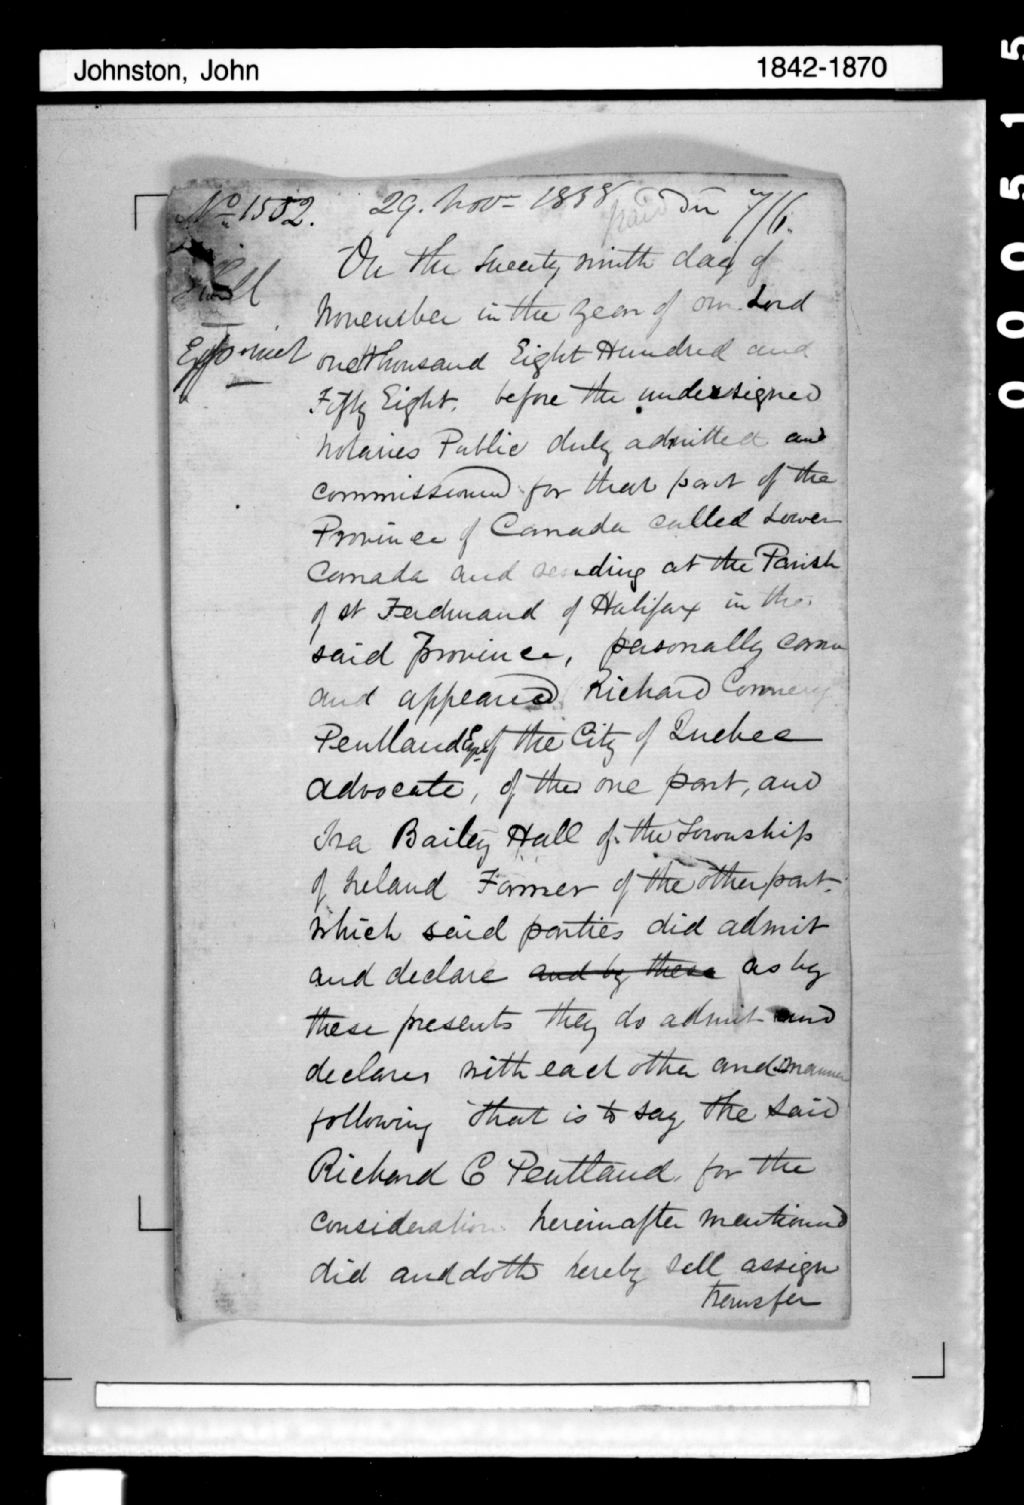 Johnston, John 1842-1870
000515
No 1552. 29. Nov= 1858 paid 7/6.
Hall
On the twenty ninth day of
November in the year of our Lord
one thousand Eight Hundred and
Fifty Eight, before the undersigned
Notaries Public duly admitted and
commissioned for that part of the
Province of Canada called Lower
Canada and residing at the Parish
of St Ferdinand of Halifax in the
said Province, personally came
and appeared Richard
Pentland Esq of the City of Quebec
Advocate, of the one part, and
Ira Bailey Hall of the Township
of Ireland Farmer of the other part.
Which said parties did admit
and declare and by these as by
these presents they do admit and
declare with each other and manner
following that is to say, the said
Richard C Pentland, for the
consideration hereinafter mentioned
did and doth hereby sell assign
transfer